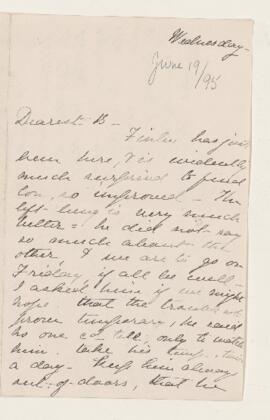 Wednesday -
June 19/95
Dearest B -
Finlay has just
been here, & is evidently
much surprised to find
Con. so improved - The
left lung is very much
better = he did not say
so much about the
other, & we are to go on
Friday if all be well -
I asked him if we might
hope that the trouble
from temporary, he said
no one cd. tell, only to watch
him. take his temp. twice
a day. Keep him always
out-of-doors, that he